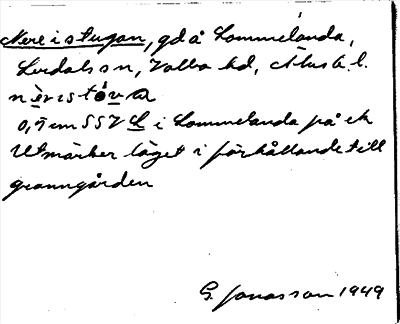 Nere i stugan, gd å Lommelanda,
Lurdals sn, Vätte hd, Älvsb. l.
nèristòva
0,5 cm SSV L i Lommelanda på ek
Utmärker läget i förhållande till
granngården
G. Jonasson 1949